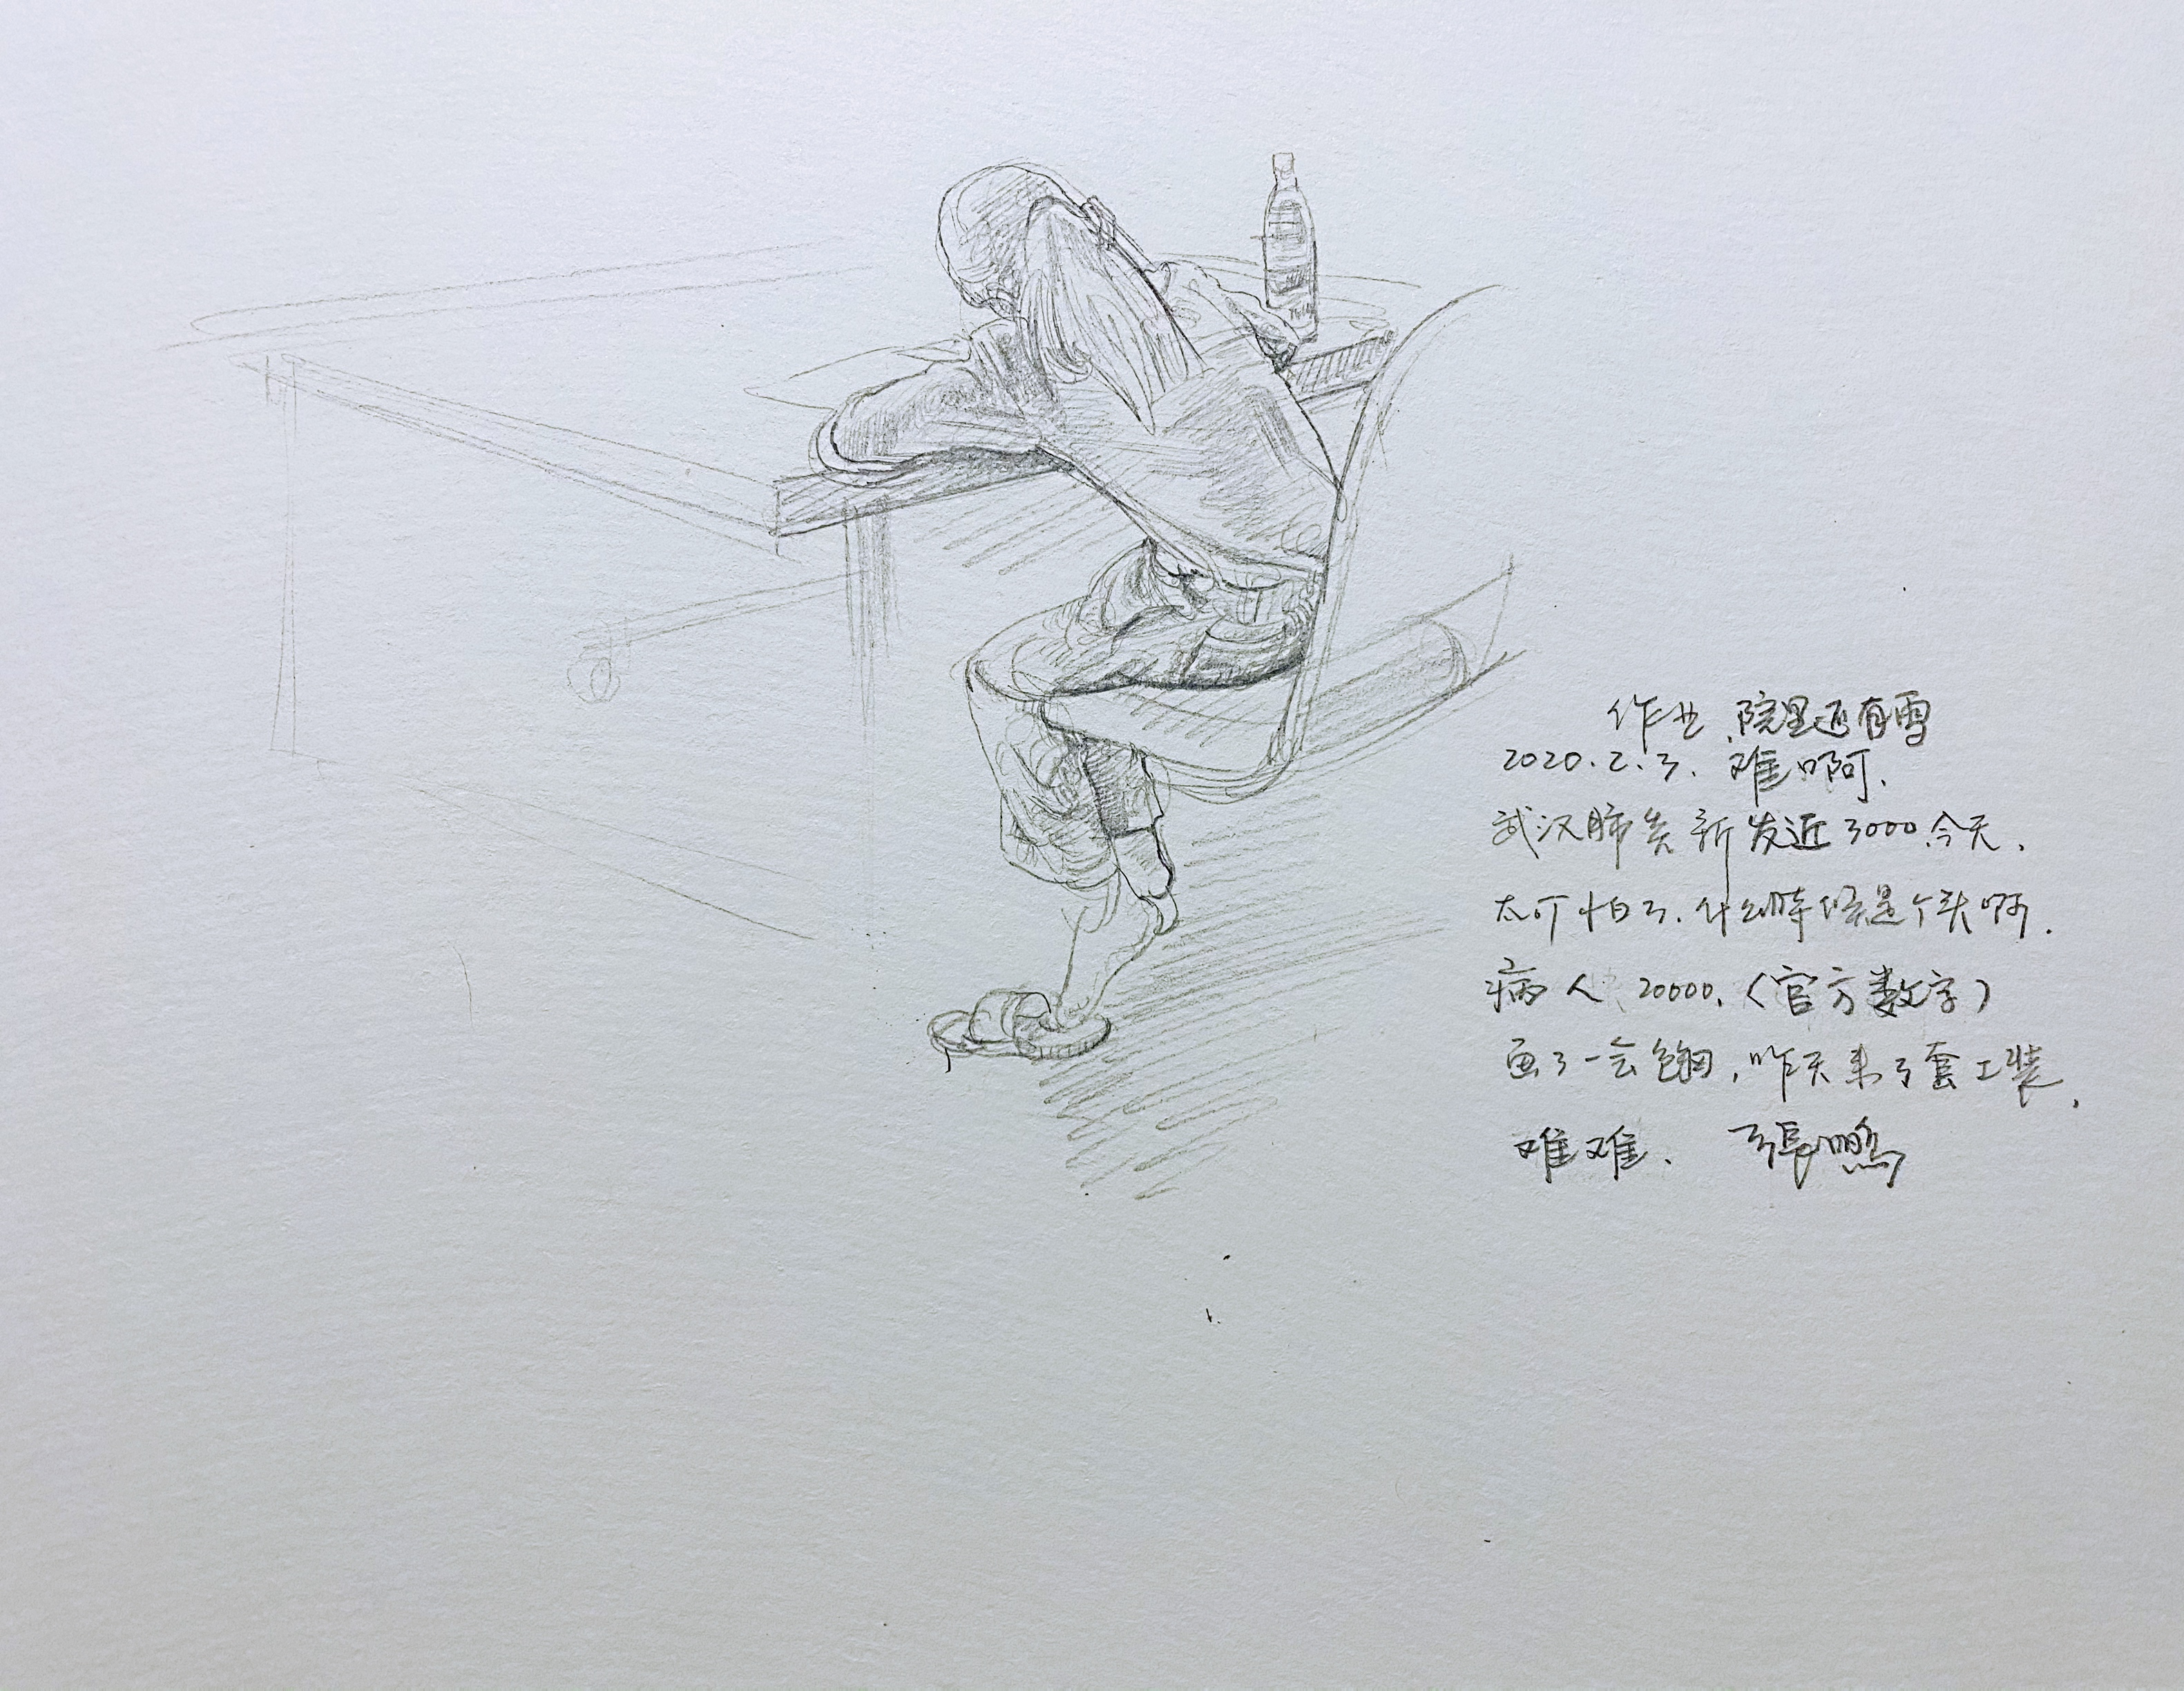 作业.院里还有雪
2020.2.3. 难啊.
武汉肺炎新发近3000.今天.
太可怕了.什么时候是个头啊.
病人 20000.(官方数字)
画了一会色稿,昨天来了套工装.
难难. 張鹏